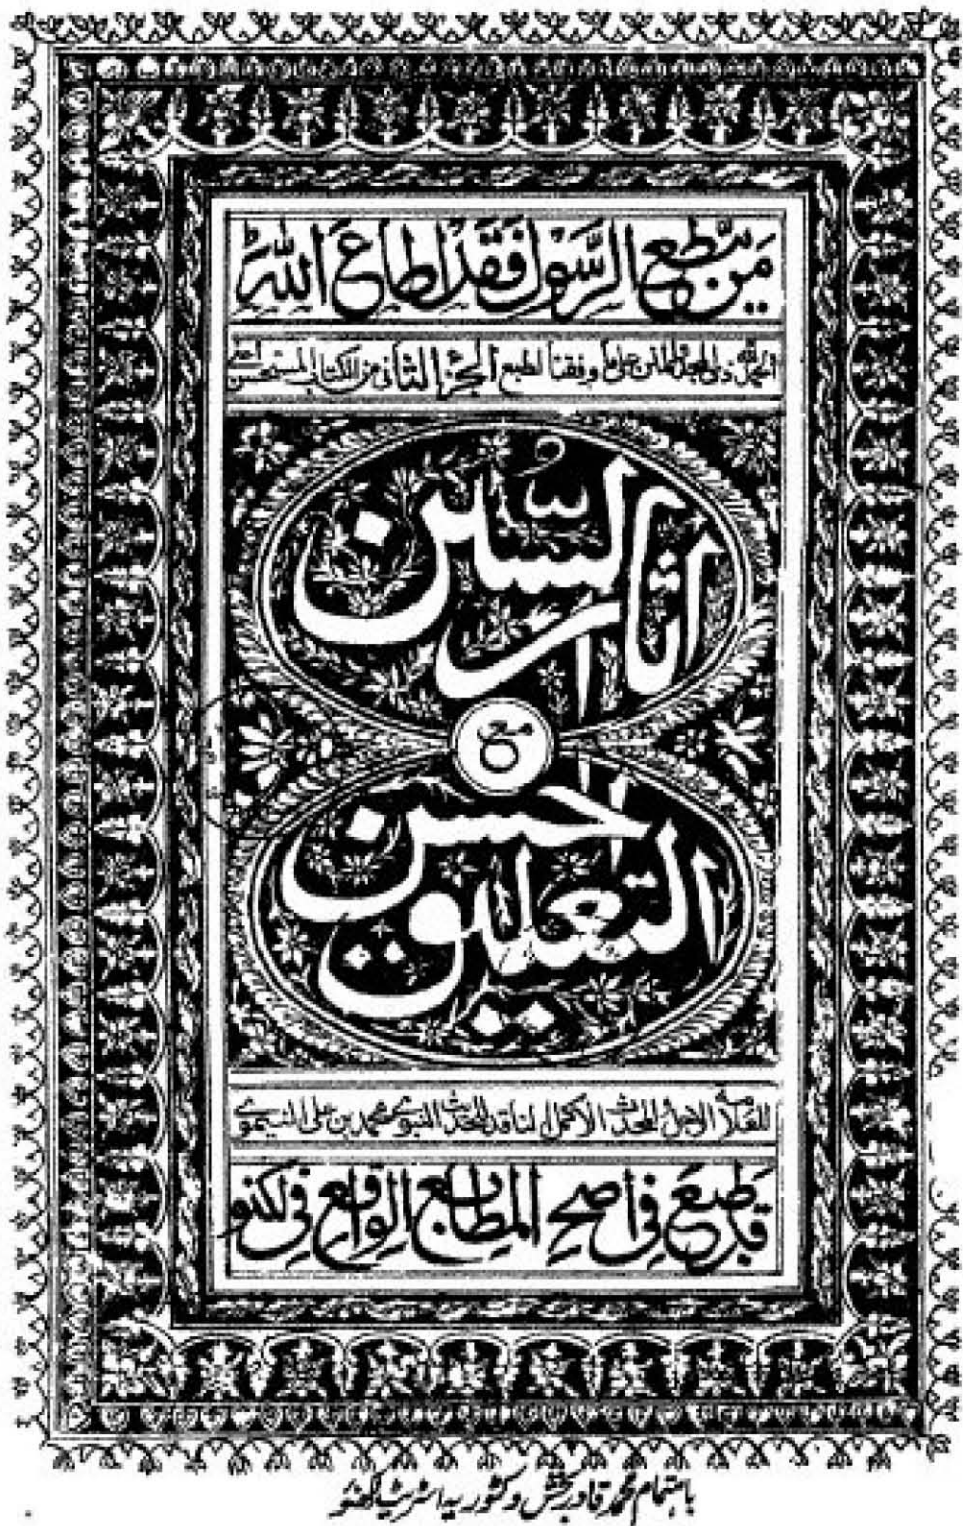 مَن يُّطِعِ الرَّسُوْلَ فَقَدْ اَطَاعَ اللّٰهَ
وفقنا لطبع الجزء الثانى من الكتاب المستحسن
اٰثار السنن
مع
التعليق الحسن
للعلامة الاجل المحدث الاكمل الناقد للحديث النبوى محمد بن على النيموى
قَد طُبِعَ فِي اَصَحِّ المَطَابِعِ الوَاقِعِ فِي لكنو
باہتمام محمد قادر بخش وکٹوریہ اسٹریٹ لکھنؤ